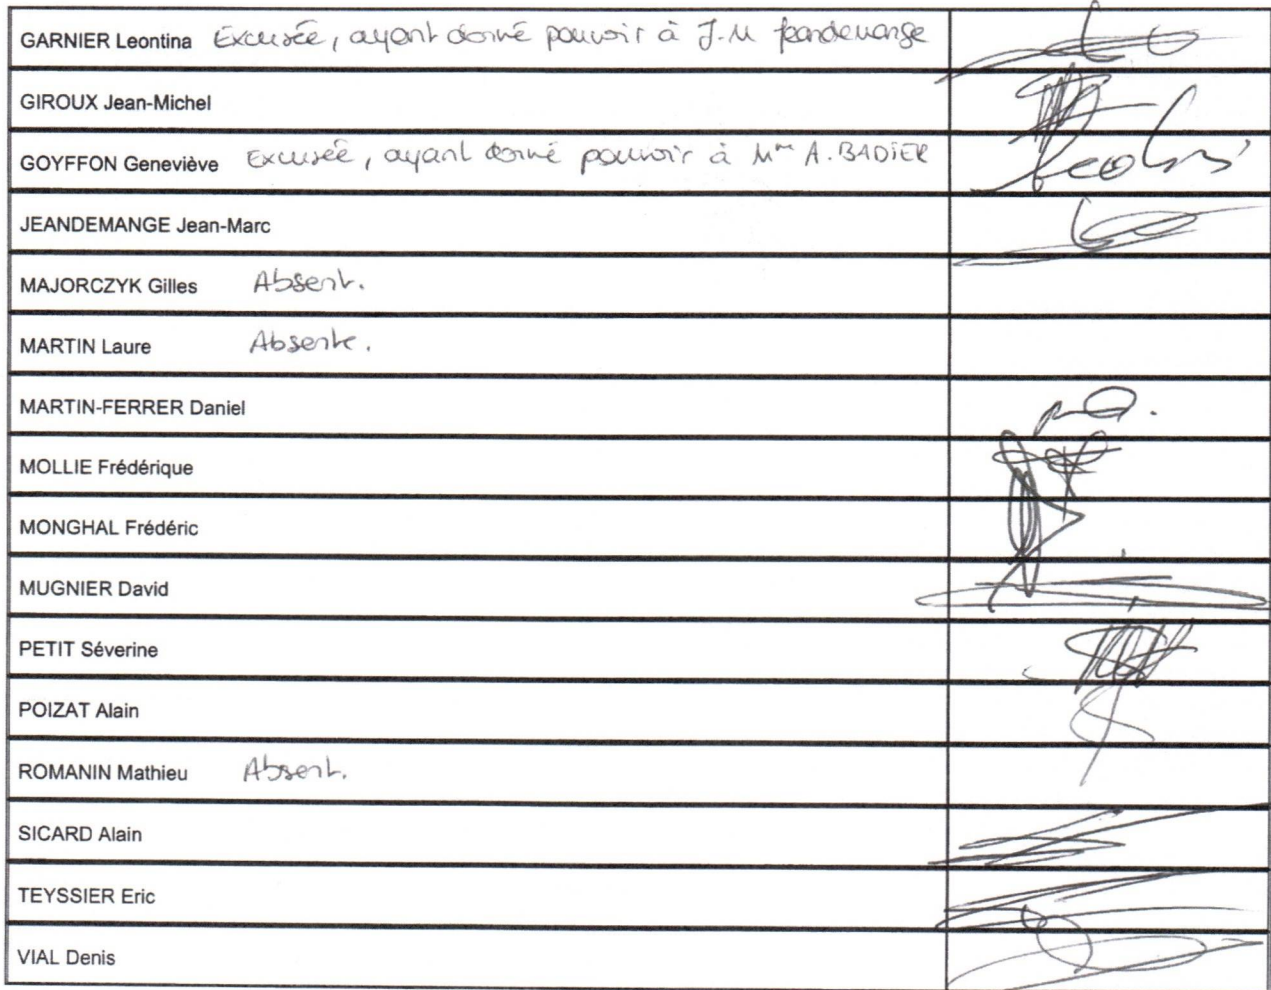 GARNIER Leontina Excusée, ayant donné pouvoir à J-M Jeandemange
GIROUX Jean-Michel
GOYFFON Geneviève Excusée, ayant donné pouvoir à Mme A. BADIER
JEANDEMANGE Jean-Marc
MAJORCZYK Gilles Absent.
MARTIN Laure Absente.
MARTIN-FERRER Daniel
MOLLIE Frédérique
MONGHAL Frédéric
MUGNIER David
PETIT Séverine
POIZAT Alain
ROMANIN Mathieu Absent.
SICARD Alain
TEYSSIER Eric
VIAL Denis